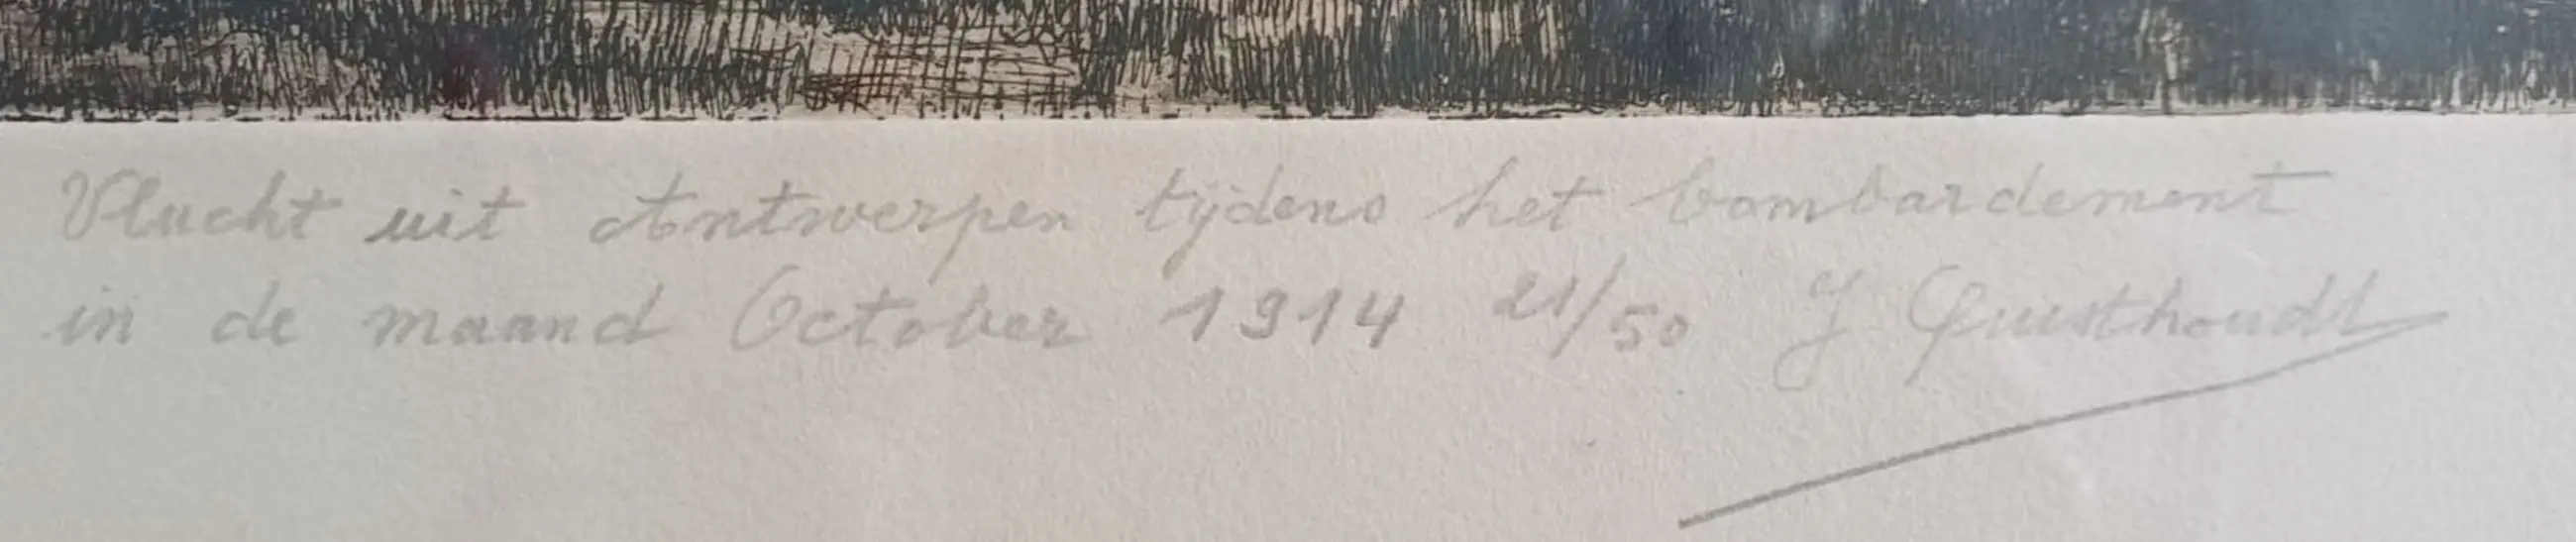 Vlucht uit Antwerpen tijdens het bombardement
in de maand October 1914 21/50 J Quisthoudt